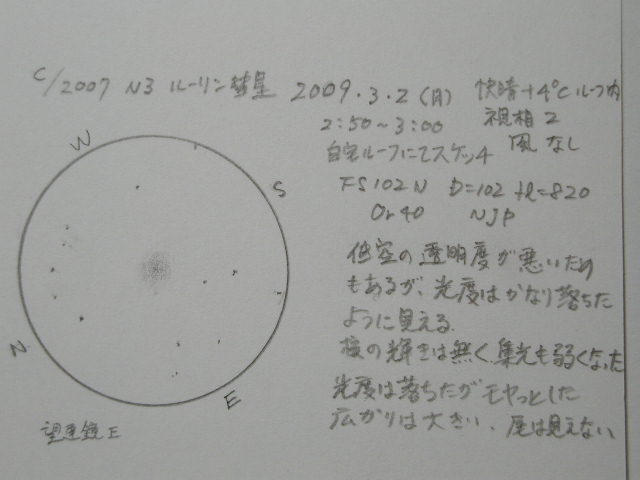 C/2007 N3 ルーリン彗星 2009.3.2 (月) 快晴 +4℃ ルーフ内
2:50~3:00 視相 2
自宅ルーフにてスケッチ 風 なし
FS102N D=102 fl=820
Or40 NJP
低空の透明度が悪いため
もあるが、光度はかなり落ちた
ように見える.
核の輝きは無く、集光も弱くなった
光度は落ちたがモヤっとした
広がりは大きい、尾は見えない
W
S
N
E
望遠鏡